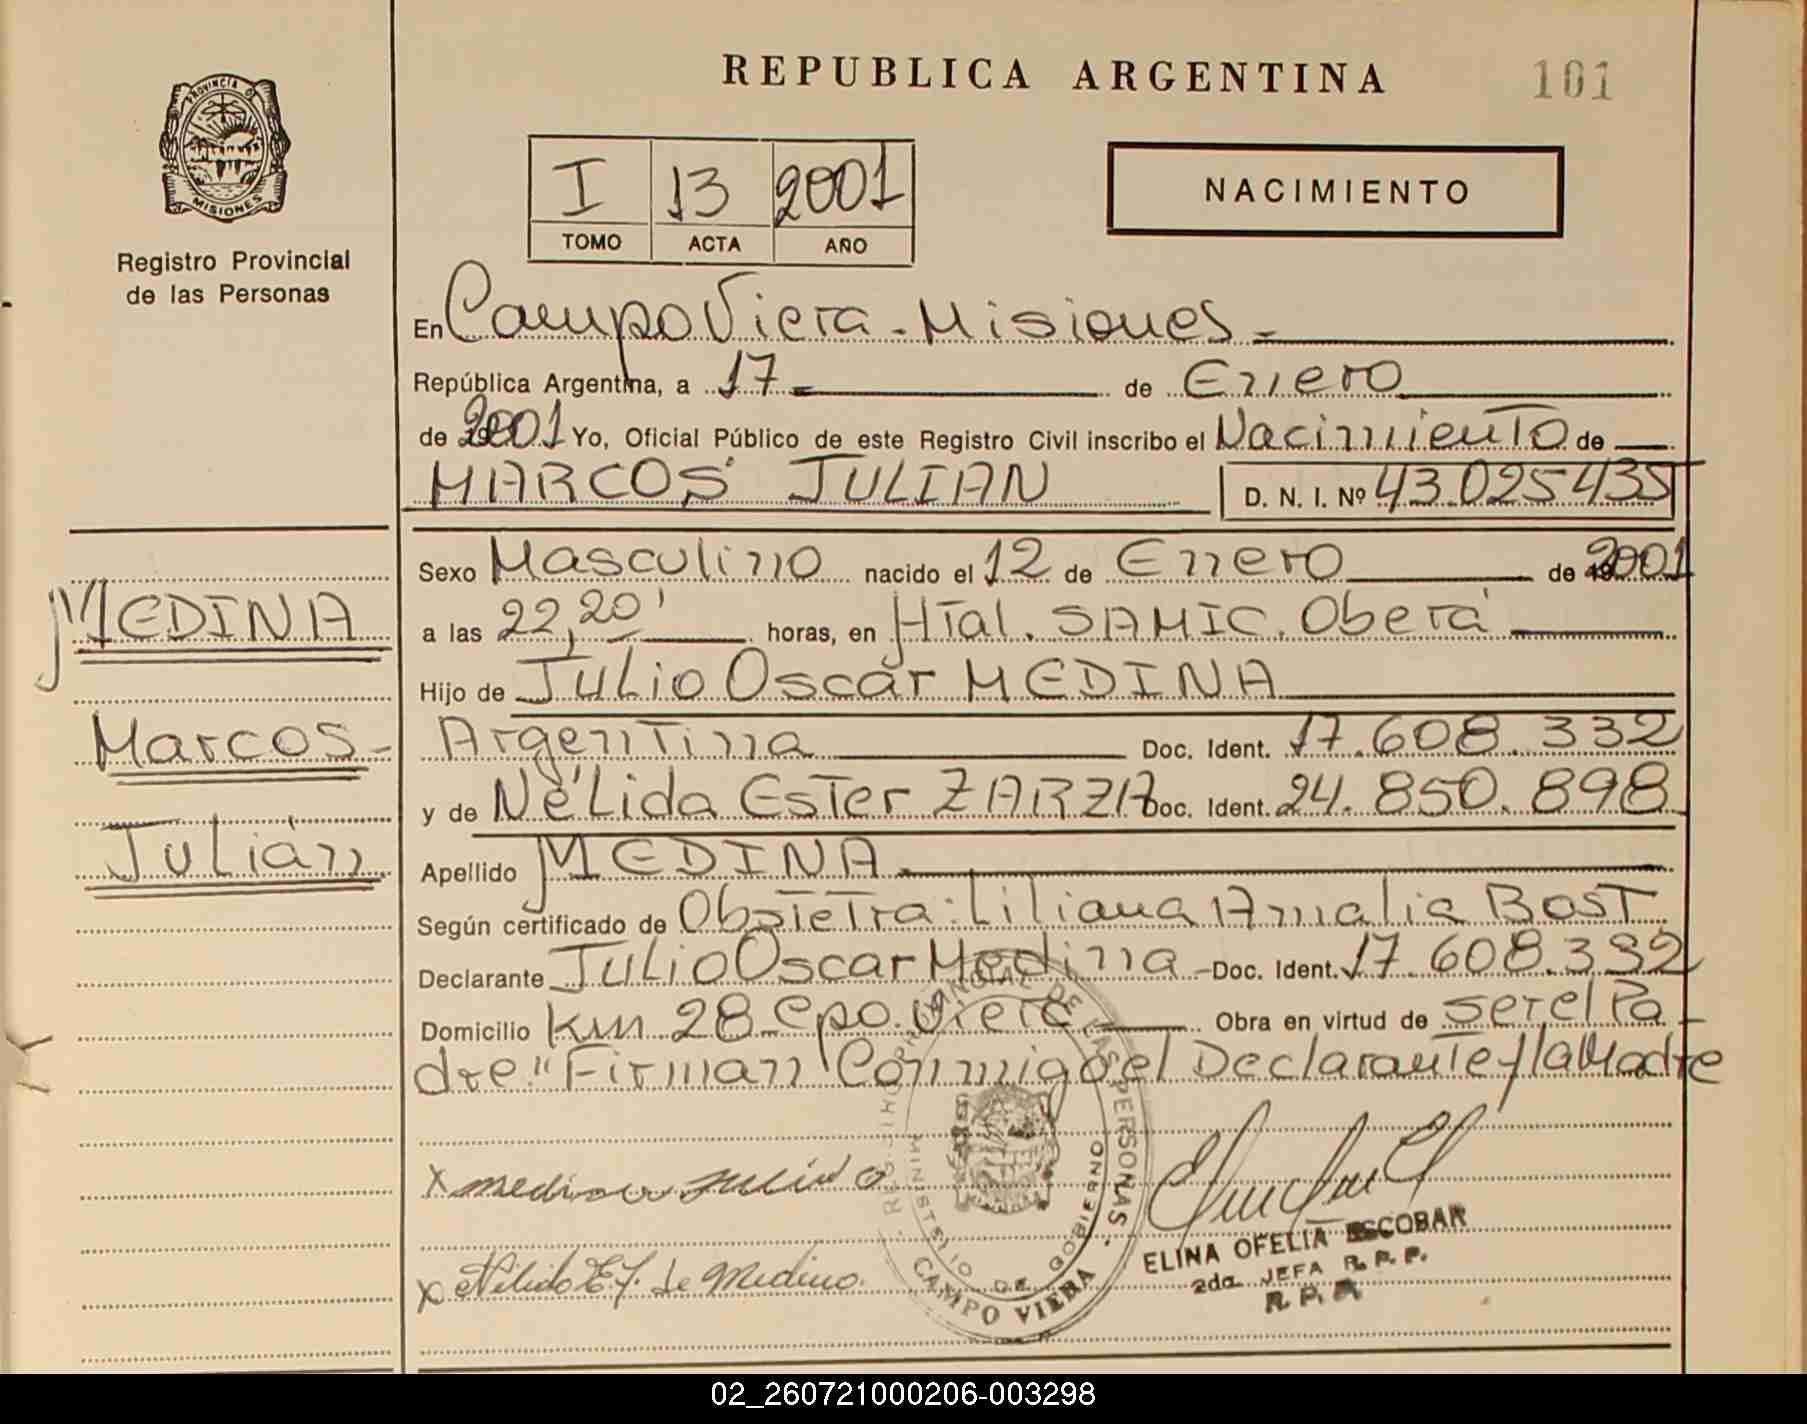 REPUBLICA ARGENTINA
101
PROVINCIA DE
MISIONES
Registro Provincial
de las Personas
I 13 2001
TOMO ACTA AÑO
NACIMIENTO
En Campo Viera - Misiones -
República Argentina, a 17 - de Enero
de 2001 Yo, Oficial Público de este Registro Civil inscribo el Nacimiento de
MARCOS JULIAN D. N. I. Nº 43.025435
Sexo Masculino nacido el 12 de Enero de 2001
a las 22,20' horas, en Htal. SAMIC. Oberá
Hijo de Julio Oscar MEDINA
Argentina Doc. Ident. 17.608.332
y de Nélida Ester ZARZA Doc. Ident. 24.850.898
Apellido MEDINA
Según certificado de Obstetra: Liliana Amalia Bast
Declarante Julio Oscar Medina - Doc. Ident. 17.608.332
Domicilio Km 28 Cpo. Viera Obra en virtud de ser el Pa-
dre." Firman Conmigo el Declarante y la Madre
MEDINA
Marcos-
Julián
x medina julio o
x Nélida E Z. de Medina
REGISTRO PROVINCIAL DE LAS PERSONAS
MINISTERIO DE GOBIERNO
CAMPO VIERA
ELINA OFELIA ESCOBAR
2da JEFA R. P. P.
R. P. P.
02_260721000206-003298